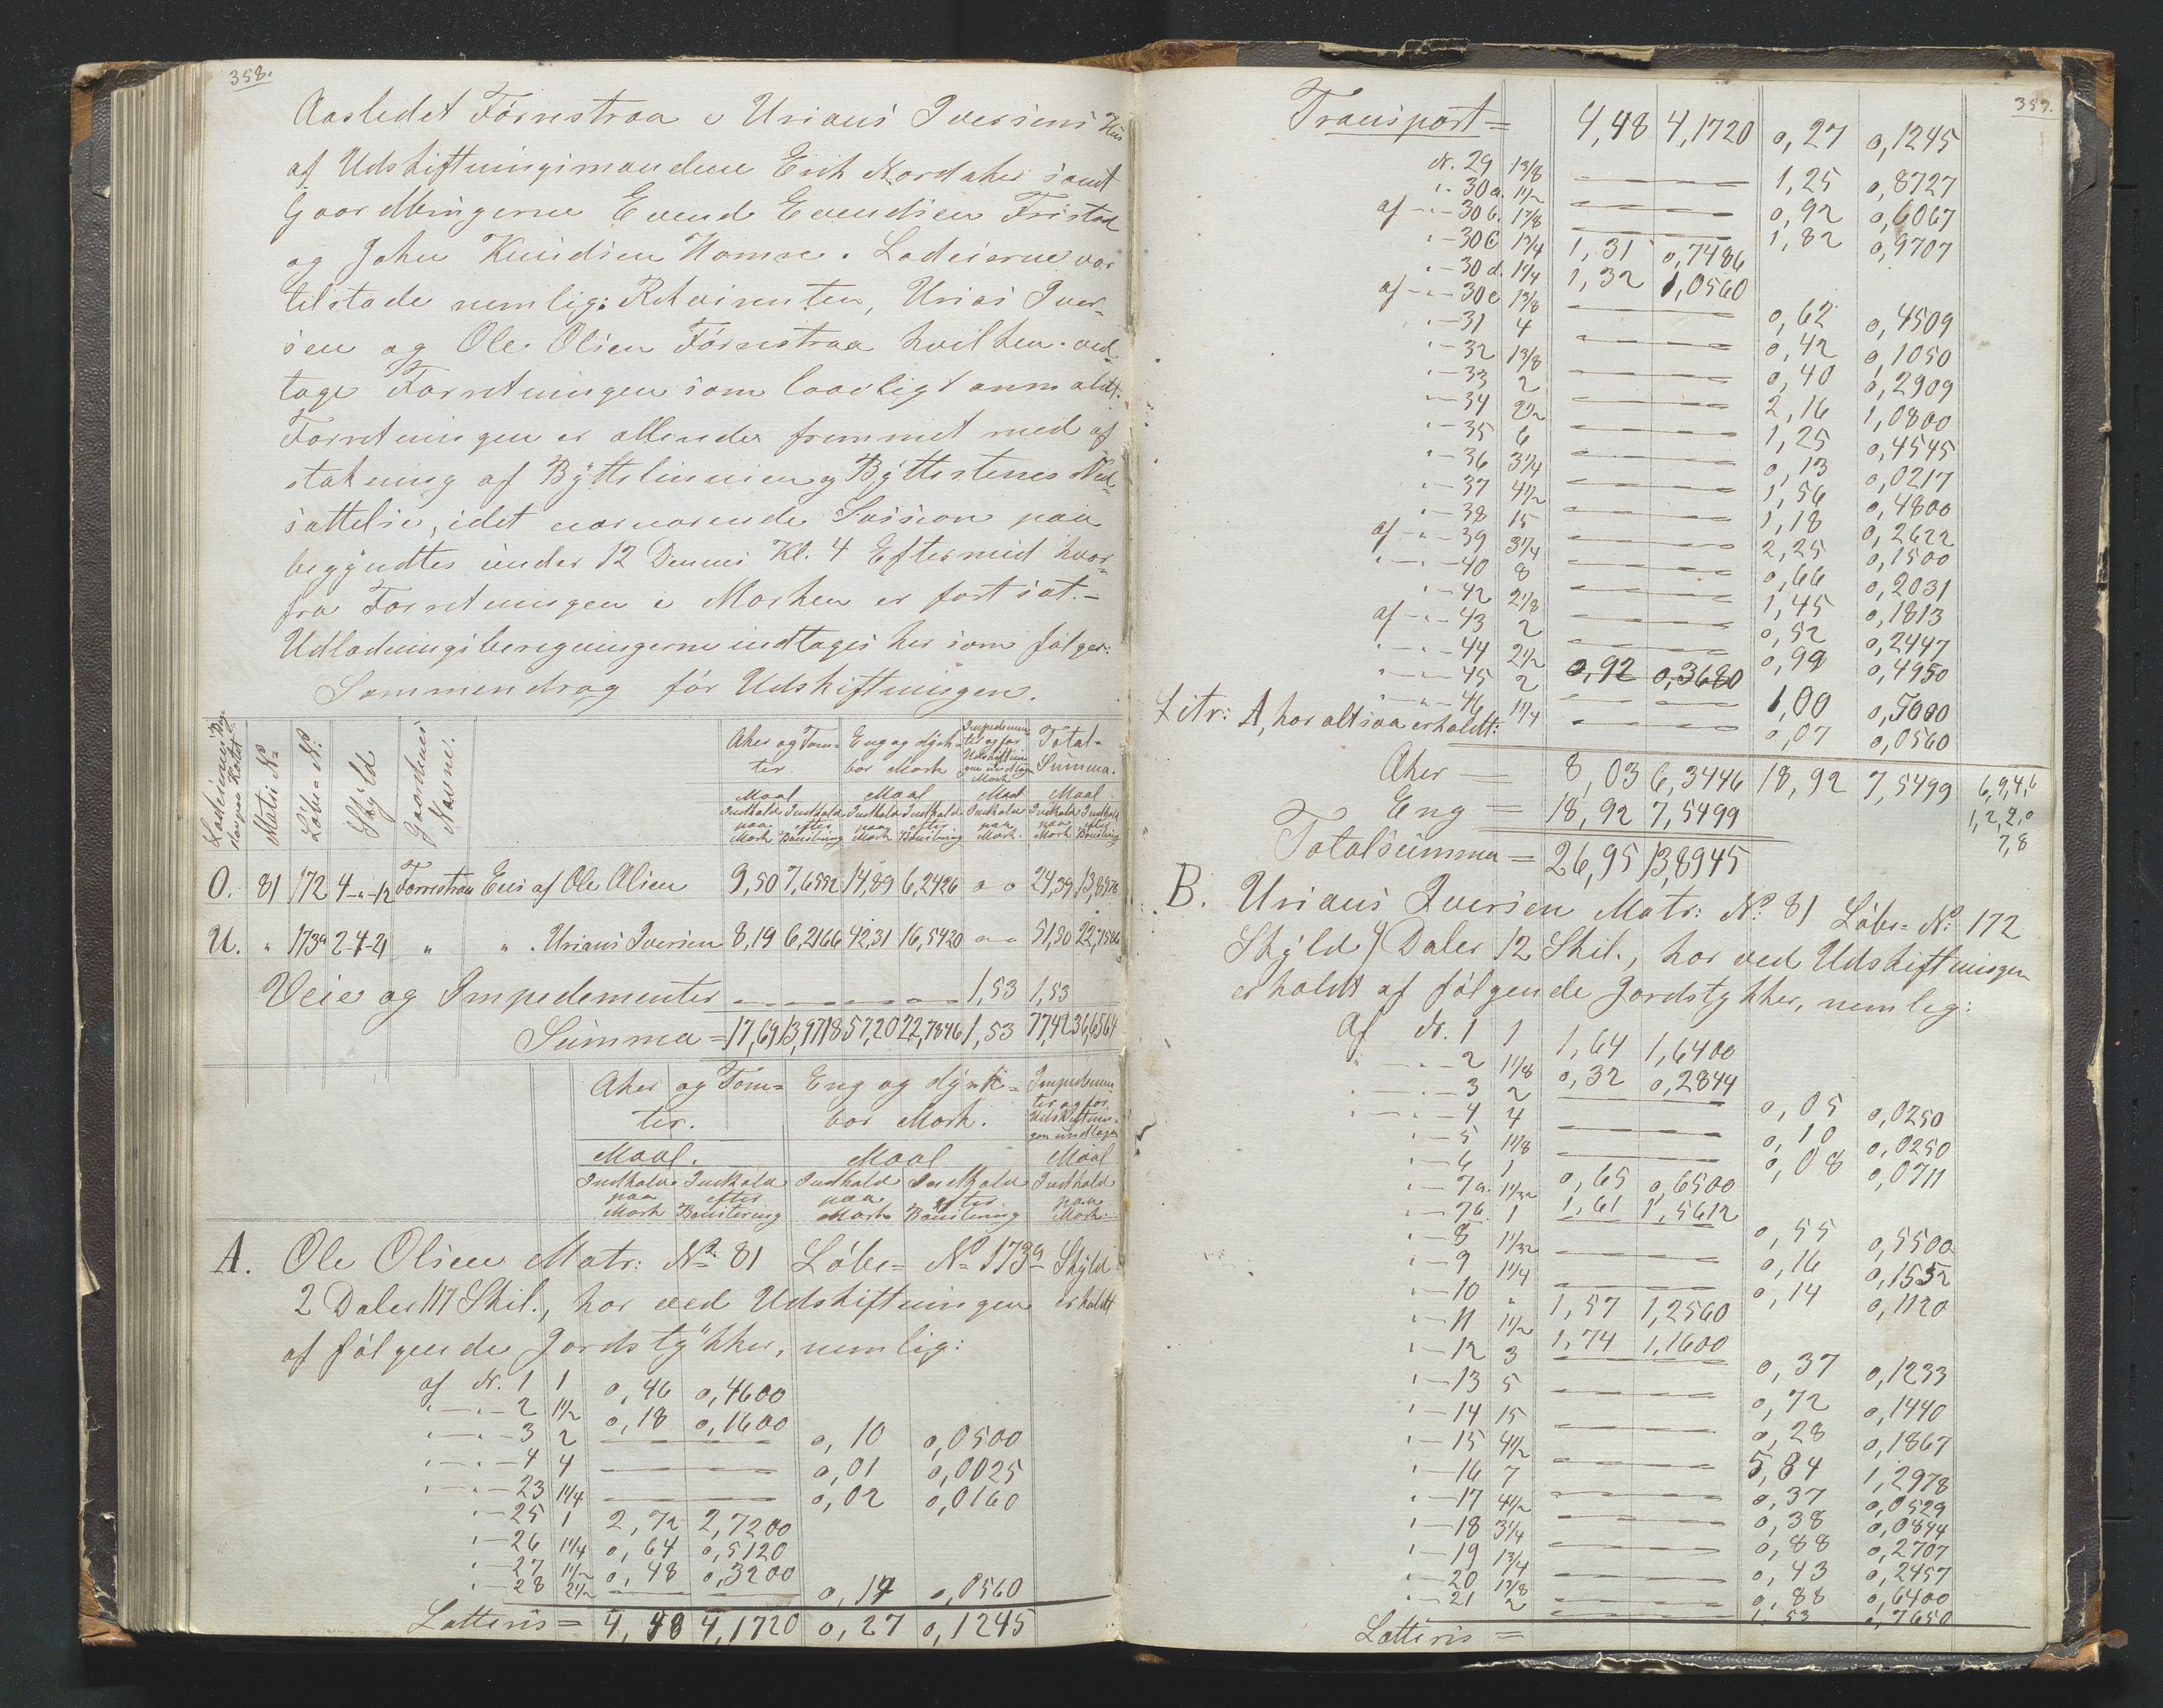 358.
AastedetFörnstraa i Uriaus Iversens Hus
af Udskiftningsmændene Erik Nordaker samt
Gaardbrugerne Evend Evendsen Fristad
og John Knudsen Homre. Lodeierne var
tilstede nemlig: Rekvirenten, Urias Iver-
sen og Ole Olsen Förnstraa hvilken ved-
toge Forretningen som lovligt anmeldt.
Forretningen er allerede fremmet med af-
stakning af Bÿttelinnien og Bÿttestenes Ned-
sættelse, idet nærværende Session paa-
begyndtes under 12 Dennes Kl. 4 Eftermid hvor-
fra Forretningen i Marken er fortsat.-
Udlodningsberegningerne indtages her som følger:
Sammendrag før Udskiftningen.
Matr: No Löbe-No Skÿld Gaardens Navne.
Aker og Tom- Eng og dÿrk- Impedimen- Total-
ter. bar Mark Summa.
Maal Maal Maal Maal
Indhold paa Mark Indhold efter Bonitering Indhold paa Mark Indhold efter Bonitering Indhold paa Mark Indhold paa Mark Indhold efter Bonitering
O. 81 172 4-"-12 Fornstraa Eies af Ole Olsen 9,50 7,6552 14,89 6,2426 24,39 13,8978
U. " 173a 2-4-21 " " Uriaus Iversen 8,19 6,2166 42,31 16,5420 51,50 22,7586
Veie og Impedementer 1,53 1,53
Summa = 17,69 13,9718 57,20 22,7846 1,53 77,42 36,6564
Aker og Tom- Eng og dÿrk- Impedimen-
ter. bar Mark. ter og for
Udskiftnin-
gen undtagen
Maal. Maal Maal
Indhold paa Mark Indhold efter Bonitering Indhold paa Mark Indhold efter Bonitering Indhold paa Mark.
A. Ole Olsen Matr: No 81 Löbe- No 173a Skÿld
2 Daler 117 Skil., har ved Udskiftningen erholdt
af følgende Jordstÿkker, nemlig:
af N. 1 1 0,46 0,4600
" - " - 2 1 1/2 0,18 0,1600
" - " - 3 2 0,10 0,0500
" - " - 4 4 0,01 0,0025
" - " - 23 1 1/4 0,02 0,0160
" - 25 1 2,72 2,7200
" - 26 1 1/4 0,64 0,5120
" - 27 1 1/2 0,48 0,3200
" - 28 2 1/2 0,14 0,0560
Latteris = 4,48 4,1720 0,27 0,1245
359.
Transport = 4,48 4,1720 0,27 0,1245
N. 29 1 3/8 1,25 0,8727
" 30a. 1 1/2 0,92 0,6067
af - " - 30b. 1 7/8 1,82 0,9707
" - 30c 1 3/4 1,31 0,7486
" - 30d. 1 1/4 1,32 1,0560
af - " - 30e 1 3/8 0,62 0,4509
" - 31 4 0,42 0,1050
" - 32 1 3/8 0,40 0,2909
" - 33 2 2,16 1,0800
" - 34 2 1/2 1,25 0,4545
" - 35 6 0,13 0,0217
" - 36 3 1/4 1,56 0,4800
" - 37 4 1/2 1,18 0,2622
" - 38 15 2,25 0,1500
af - " - 39 3 1/4 0,66 0,2031
" - " - 40 8 1,45 0,1813
" - 42 2 1/8 0,52 0,2447
af - " - 43 2 0,99 0,4950
" - " - 44 2 1/2 0,92 0,3680
" - " - 45 2 1,00 0,5000
" - " - 46 1 1/4 0,07 0,0560
Litr: A, har altsaa erholdt:
Aker = 8,03 6,3446 18,92 7,5499 6,9,4,6
Eng = 18,92 7,5499 1,2,2,0
Totalsumma = 26,95 13,8945 7,8
B. Uriaus Iversen Matr: No 81 Löbe- No 172
Skÿld 4 Daler 12 Skil., har ved Udskiftningen
erholdt af følgende Jordstykker, nemlig:
Af N. 1 1 1,64 1,6400
" - " - 2 1 1/8 0,32 0,2844
" - " - 3 2 0,05 0,0250
" - " - 4 4 0,10 0,0250
" - 5 1 1/8 0,08 0,0711
" - 6 1 0,65 0,6500
" - 7a. 1 1/32 1,61 1,5612
" - 7b. 1 0,55 0,5500
" - 8 1 1/32 0,16 0,1552
" - 9 1 1/4 0,14 0,1120
" - 10 " 1,57 1,2560
" - 11 1 1/2 1,74 1,1600
" - 12 3 0,37 0,1233
" - 13 5 0,72 0,1440
" - 14 15 0,28 0,1867
" - 15 4 1/2 5,84 1,2978
" - 16 7 0,37 0,0529
" - 17 4 1/2 0,38 0,0844
" - 18 3 1/4 0,88 0,2707
" - 19 1 3/4 0,43 0,2457
" - 20 1 3/8 0,88 0,6400
" - 21 2 1,53 0,7650
Latteris =